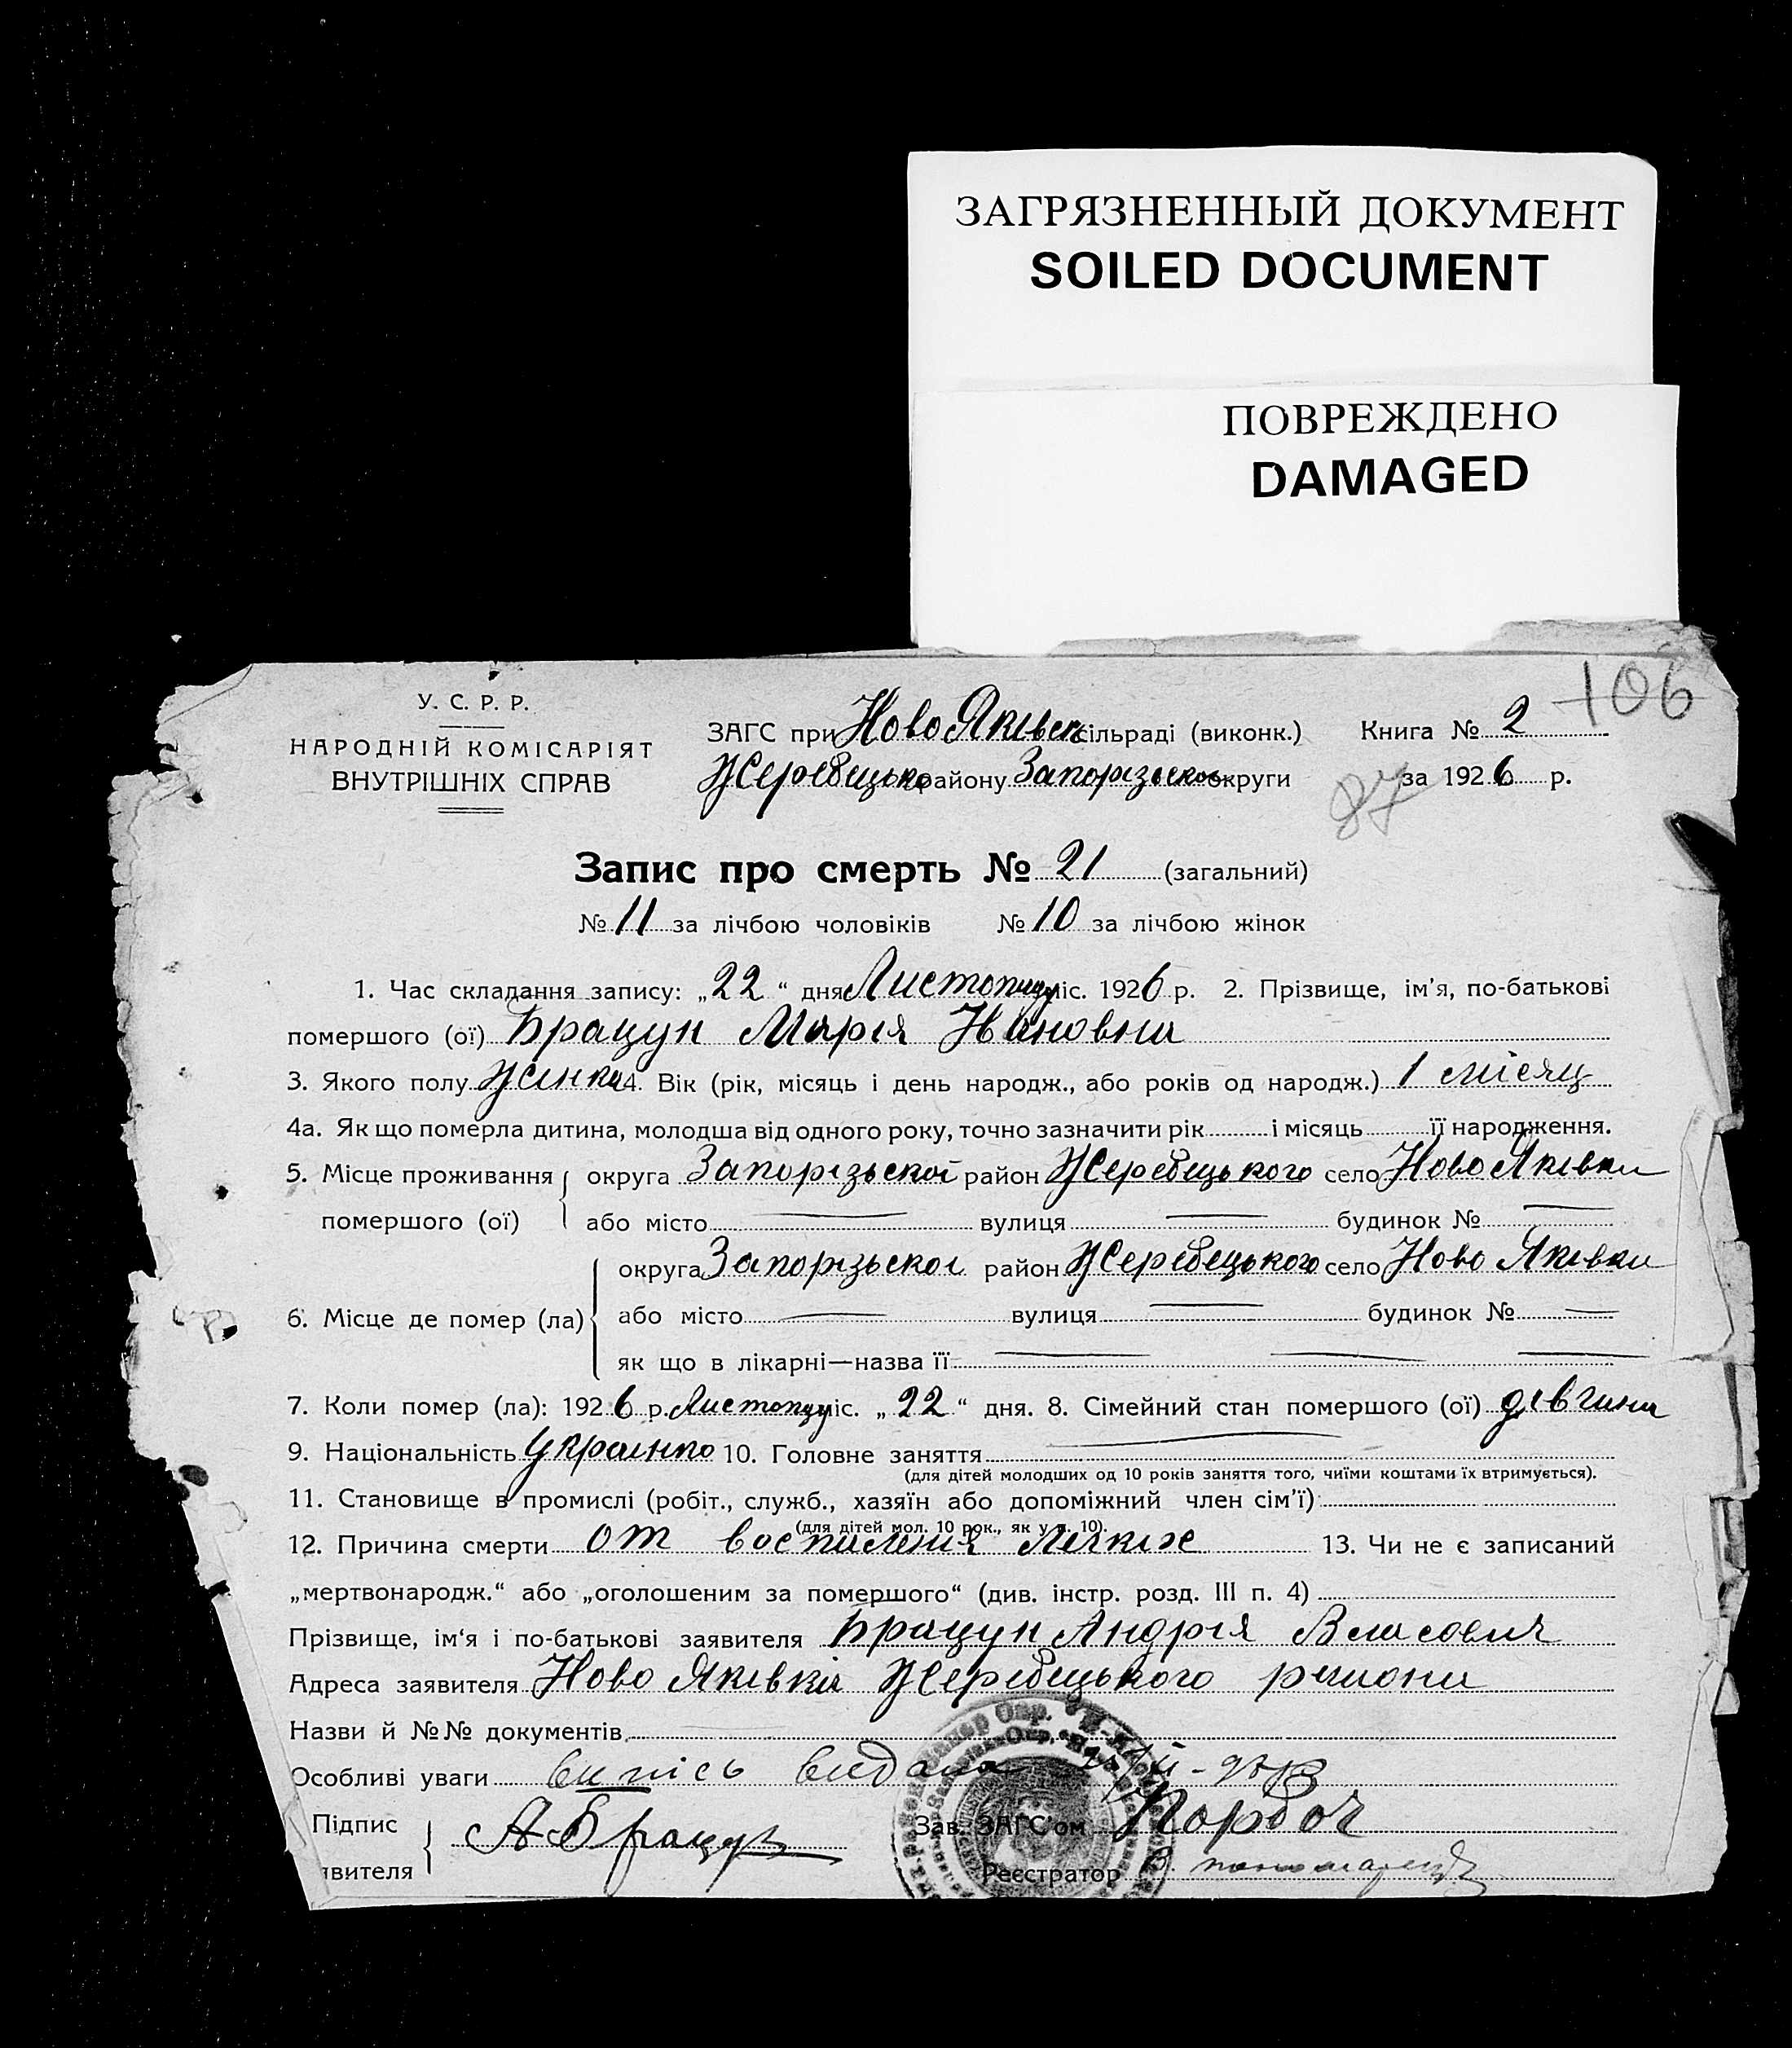 ЗАГРЯЗНЕННЫЙ ДОКУМЕНТ
SOILED DOCUMENT
ПОВРЕЖДЕНО
DAMAGED
106
У. С. Р. Р.
НАРОДНІЙ КОМІСАРІЯТ
ВНУТРІШНІХ СПРАВ
ЗАГС при Ново Яківськ сільраді (виконк.) Книга № 2
Жеребецько району Запорізьской округи за 1926 р.
87
Запис про смерть № 21 (загальний)
№ 11 за лічбою чоловіків № 10 за лічбою жінок
1. Час складання запису: „22“ дня Листопаду міс. 1926 р. 2. Прізвище, ім'я, по-батькові
помершого (ої) Брацун Марія Ивановна
3. Якого полу Жінка 4. Вік (рік, місяць і день народж., або років од народж.) 1 місяц
4а. Як що померла дитина, молодша від одного року, точно зазначити рік і місяць її народження.
5. Місце проживання помершого (ої) округа Запорізьскої район Жеребецького село Ново Яківки
або місто — вулиця — будинок № —
6. Місце де помер (ла) округа Запорізьскоі район Жеребецького село Ново Яківки
або місто — вулиця — будинок № —
як що в лікарні—назва її — — —
7. Коли помер (ла): 1926 р. Листопаду міс. „22“ дня. 8. Сімейний стан помершого (ої) дівчина
9. Національність Украінка 10. Головне заняття —
(для дітей молодших од 10 років заняття того, чиїми коштами їх втримується).
11. Становище в промислі (робіт., служб., хазяїн або допоміжний член сім'ї)
(для дітей мол. 10 рок., як у п. 10).
12. Причина смерти от воспаления Лёгких 13. Чи не є записаний
„мертвонародж.“ або „оголошеним за помершого“ (див. інстр. розд. III п. 4)
Прізвище, ім'я і по-батькові заявителя Брацун Андрія Власович
Адреса заявителя Ново Яківкія Жеребецького раиона
Назви й №№ документів
Особливі уваги випись видана
Підпис
явителя А Брацун
Зав. ЗАГС'ом
Реєстратор В.